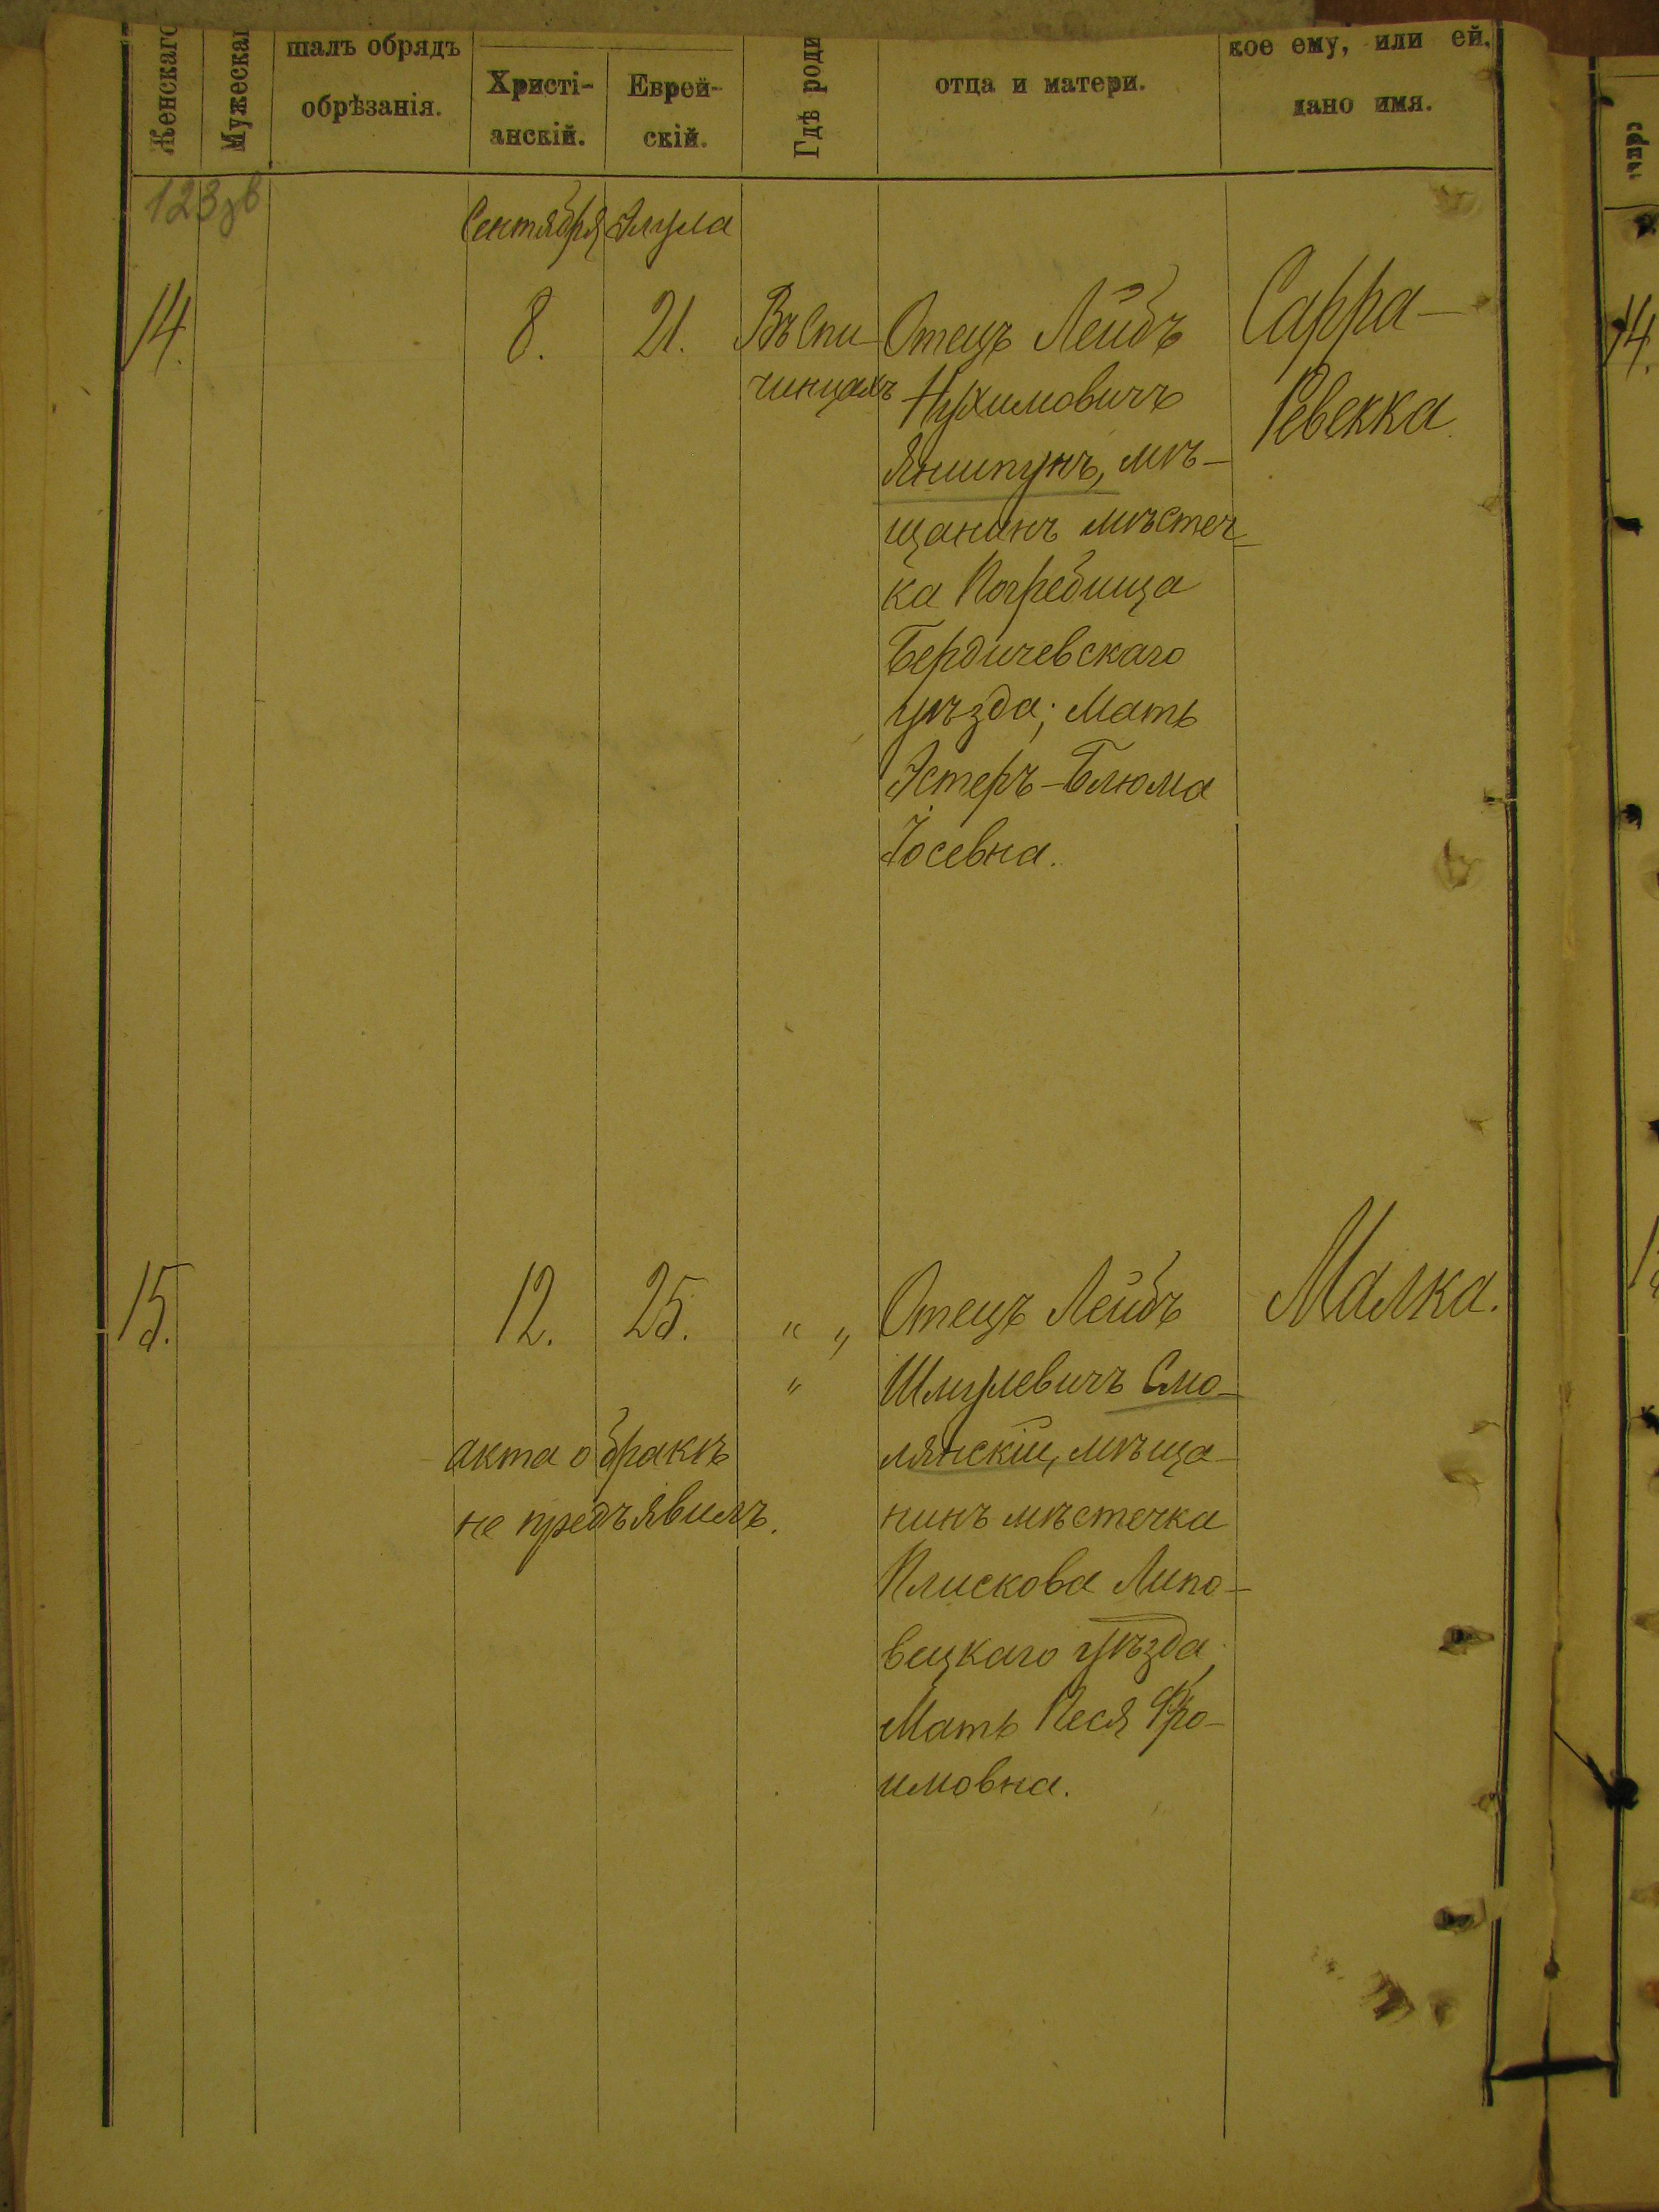 Женскаго
Мужеска
шалъ обрядъ
обрѣзанія.
Христі-
анскій.
Еврей-
скій.
Гдѣ роди
отца и матери.
кое ему, или ей,
дано имя.
123зв
Сентября Элула
14. 8. 21.
Въ Спи-
чинцахъ
Отецъ Лейбъ
Нухимовичъ
Янишпунъ, мѣ-
щанинъ мѣстеч-
ка Погребища
Бердичевскаго
уѣзда; Мать
Эстеръ-Блюма
Іосевна.
Сарра-
Ревекка.
15. 12. 25. " "
"
акта о бракѣ
не предъявилъ.
Отецъ Лейбъ
Шмулевичъ Смо-
лянскій, мѣща-
нинъ мѣстечка
Плискова Липо-
вецкаго уѣзда;
Мать Песя Фро-
имовна.
Малка.
14.